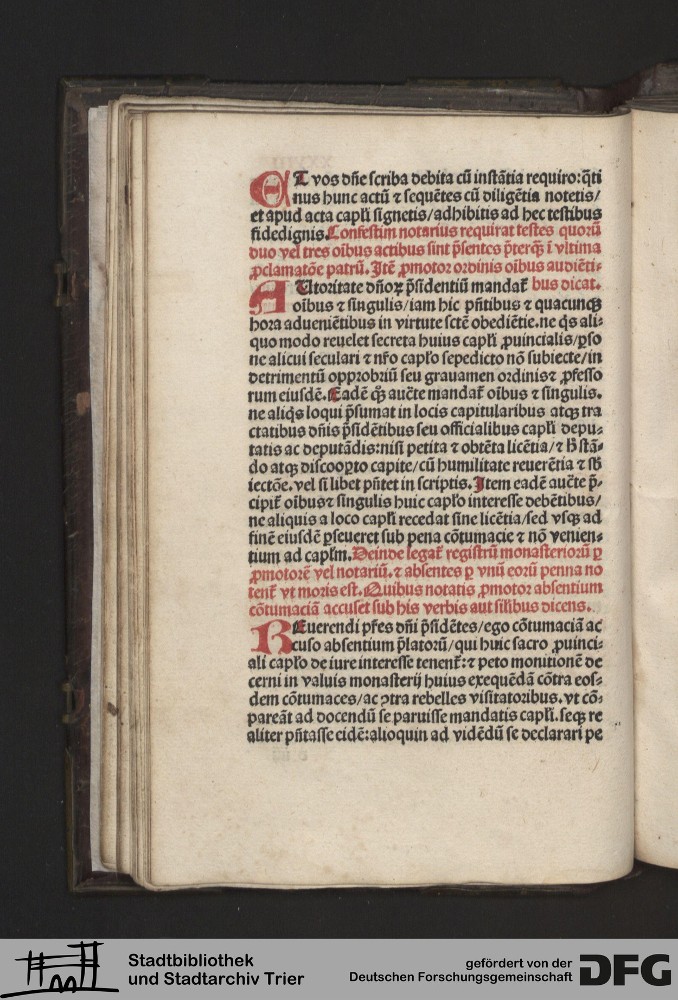 ET vos dñe scriba debita cū instātia requiro: q̄ti
nus hunc actū ⁊ sequētes cū diligētia notetis/
et apud acta capłi signetis/adhibitis ad hec testibus
fidedignis. Confestim notarius requirat testes quorū
duo vel tres oībus actibus sint p̄sentes p̄terq̄ȝ ī vltima
ꝓclamatōe patrū. Itē ꝓmotor ordinis oībus audiēti-
AUtoritate dñoꝝ p̄sidentiū mandať bus dicat.
oībus ⁊ singulis/iam hic pñtibus ⁊ quacunqȝ
hora adueniētibus in virtute sctē obediētie. ne q̄s ali-
quo modo reuelet secreta huius capłi ꝓuincialis/ꝑso
ne alicui seculari ⁊ nr̄o capło sepedicto nō subiecte/in
detrimentū opprobriū seu grauamen ordinis ⁊ ꝓfesso
rum eiusdē. Eadē qȝ aucte mandať oībus ⁊ singulis.
ne aliq̄s loqui p̄sumat in locis capitularibus atqȝ tra
ctatibus dñis p̄sidētibus seu officialibus capłi depu-
tatis ac deputādis: nisi petita ⁊ obtēta licētia/⁊ ħ stā-
do atqȝ discooꝑto capite/cū humilitate reuerētia ⁊ sb̄
iectōe. vel si libet pñtet in scriptis. Item eadē aucte p̄-
cipiť oībus ⁊ singulis huic capło interesse debētibus/
ne aliquis a loco capłi recedat sine licētia/sed vsqȝ ad
finē eiusdē ꝑseueret sub pena cōtumacie ⁊ nō venien-
tium ad capłm. Deinde legať registrū monasteriorū ꝑ
ꝓmotorē vel notariū. ⁊ absentes ꝑ vnū eorū penna no
tenť vt moris est. Quibus notatis ꝓmotor absentium
cōtumaciā accuset sub his verbis aut silibus dicens.
REuerendi pr̄es dñi p̄sidētes/ego cōtumaciā ac
cuso absentium p̄latorū/qui huic sacro ꝓuinci-
ali capło de iure interesse tenenť: ⁊ peto monitionē de
cerni in valuis monasterij huius exequēdā cōtra eos-
dem cōtumaces/ac ꝯtra rebelles visitatoribus. vt cō-
pareāt ad docendū se paruisse mandatis capłi. seqȝ re
aliter pñtasse eidē: alioquin ad vidēdū se declarari pe
Stadtbibliothek
und Stadtarchiv Trier
gefördert von der
Deutschen Forschungsgemeinschaft
DFG